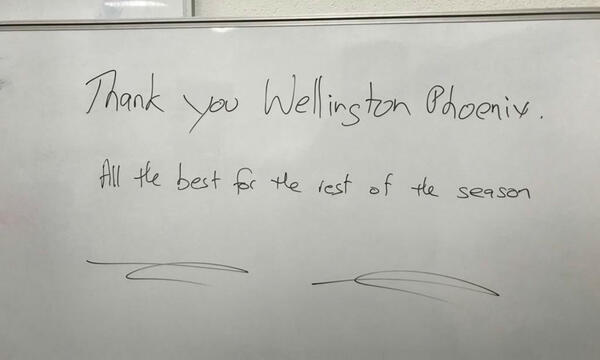 Thank you Wellington Phoenix.
All the best for the rest of the season